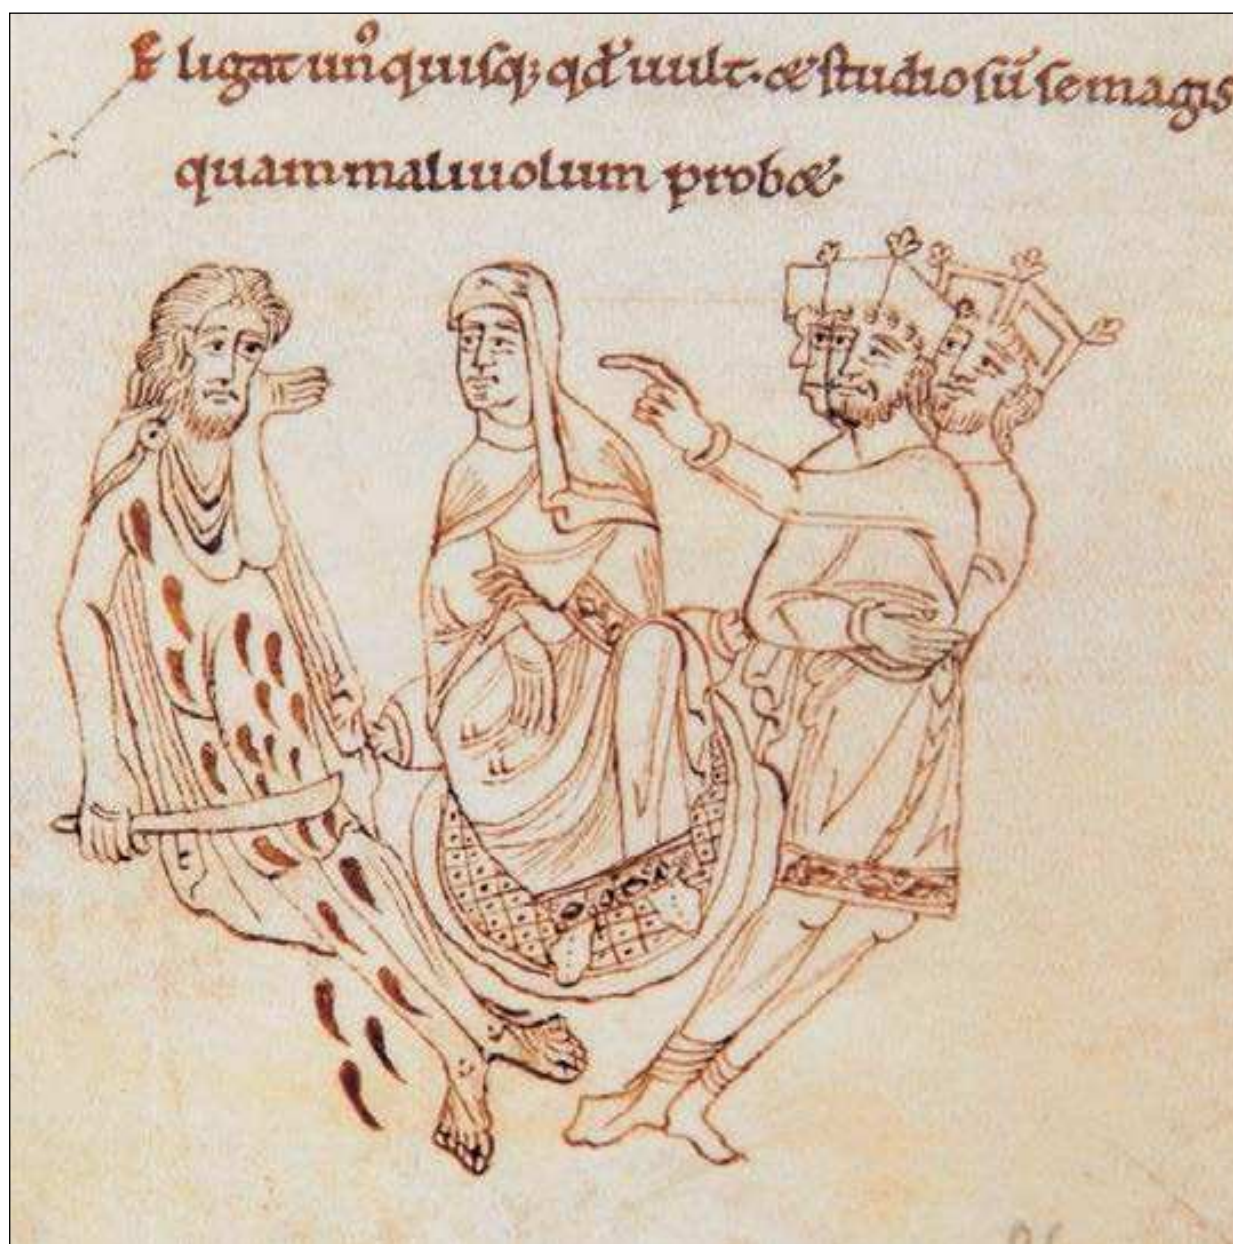 Eligat unꝰquisqꝫ qđ uult · & studiosū se magis
quam maliuolum prob&·